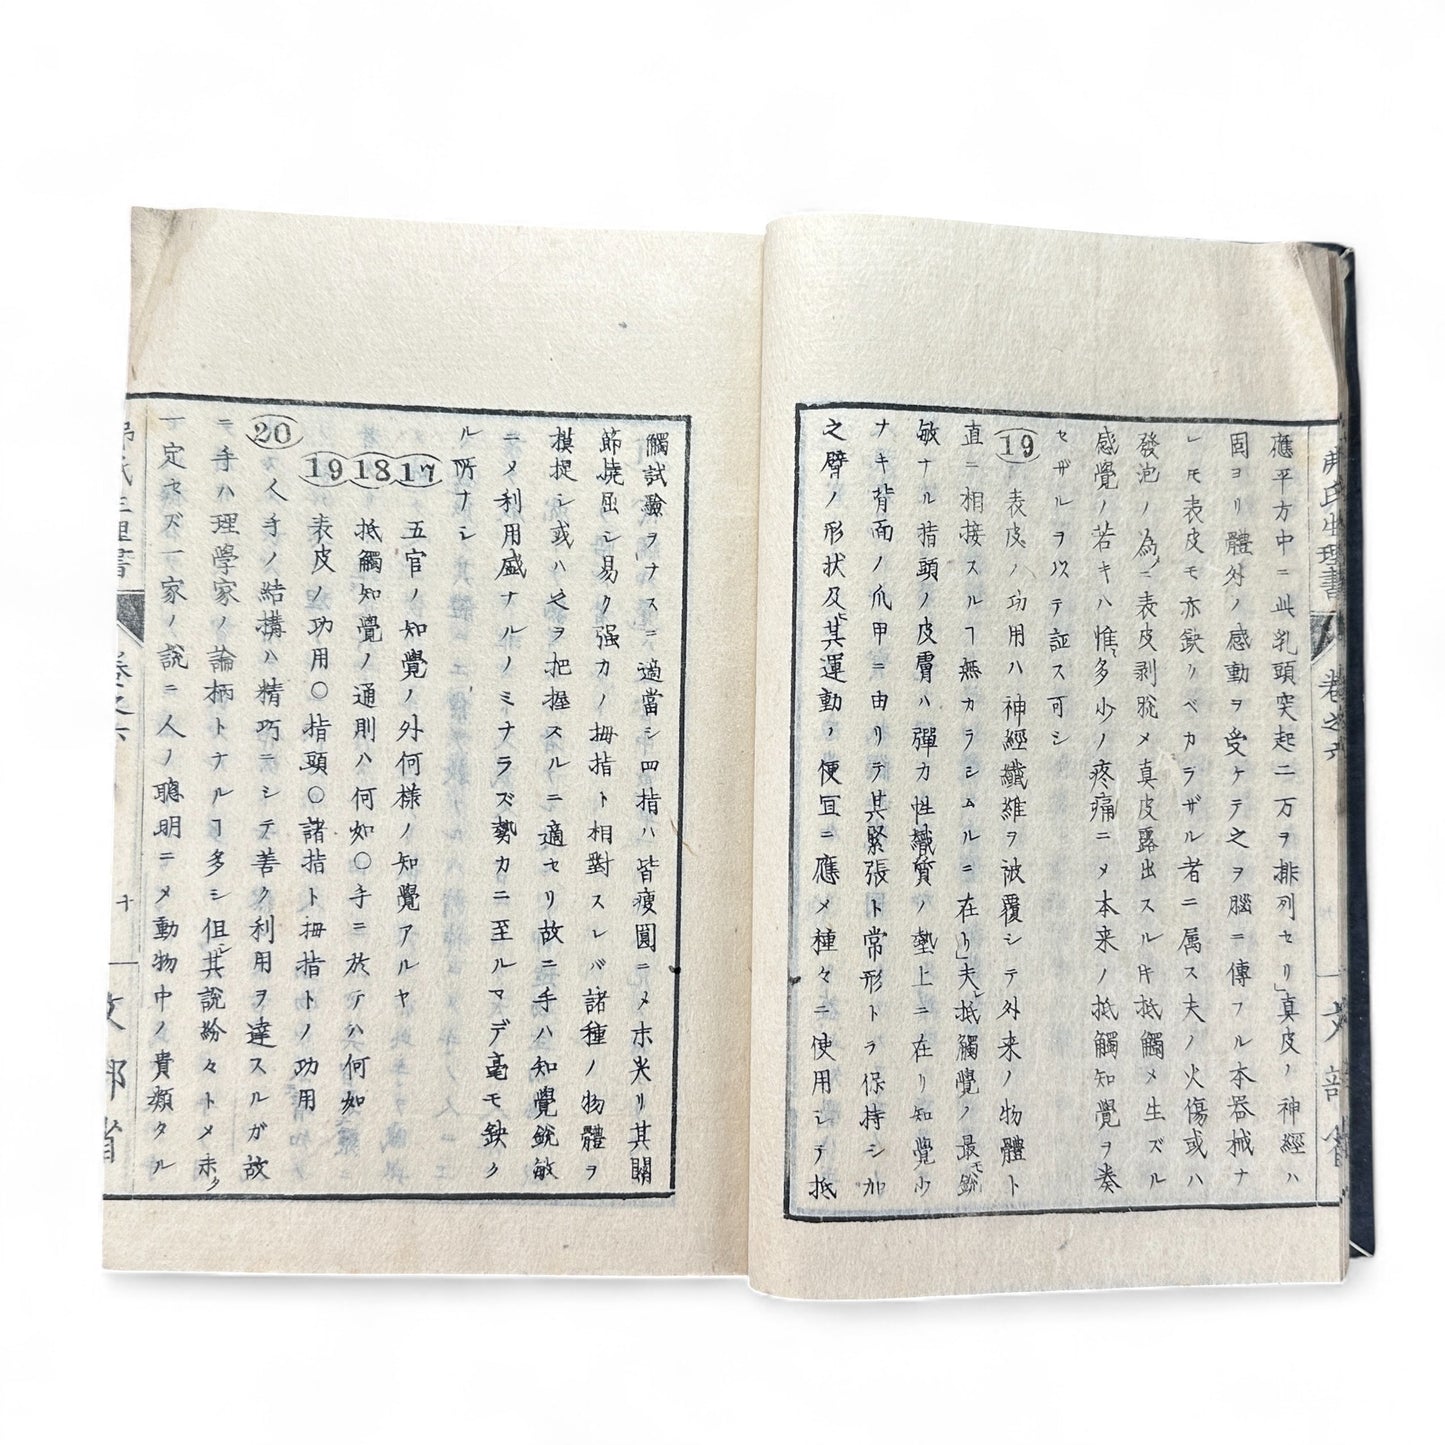 應平方中ニ此乳頭突起二万ヲ排列セリ」真皮ノ神經ハ
固ヨリ體外ノ感動ヲ受ケテ之ヲ腦ニ傳フル本器械ナ
レモ表皮モ亦缺クベカラザル者ニ属ス夫ノ火傷或ハ
發泡ノ為ニ表皮剥脱メ真皮露出スルキ抵觸メ生ズル
感覺ノ若キハ惟多少ノ疼痛ニメ本来ノ抵觸知覺ヲ奏
セザルヲ以テ証ス可シ
19 表皮ノ功用ハ神經纖維ヲ被覆シテ外来ノ物體ト
直ニ相接スルヿ無カラシムルニ在リ」夫レ抵觸覺ノ最モ鋭
敏ナル指頭ノ皮膚ハ彈力性織質ノ墊上ニ在リ知覺少
ナキ背面ノ爪甲ニ由リテ其緊張ト常形トヲ保持シ加
之臂ノ形状及ヒ其運動ノ便宜ニ應メ種々ニ使用シテ抵
觸試驗ヲナスニ適當シ四指ハ皆瘦圓ニメ末尖リ其關
節撓屈シ易ク强カノ拇指ト相對スレバ諸種ノ物體ヲ
摸捉シ或ハ之ヲ把握スルニ適セリ故ニ手ハ知覺銳敏
ニメ利用盛ナルノミナラズ勢力ニ至ルマデ毫モ缺ク
ル所ナシ
17 五官ノ知覺ノ外何様ノ知覺アルヤ
18 抵觸知覺ノ通則ハ何如〇手ニ於テハ何如
19 表皮ノ功用〇指頭〇諸指ト拇指トノ功用
20 人手ノ結搆ハ精巧ニシテ善ク利用ヲ達スルガ故
ニ手ハ理學家ノ論柄トナルヿ多シ但シ其說紛々トメ未ク
一定セズ一家ノ説ニ人ノ聰明ニメ動物中ノ貴類タル
氏生理書 卷之六 文部省
氏生理書 卷之六 十 文部省